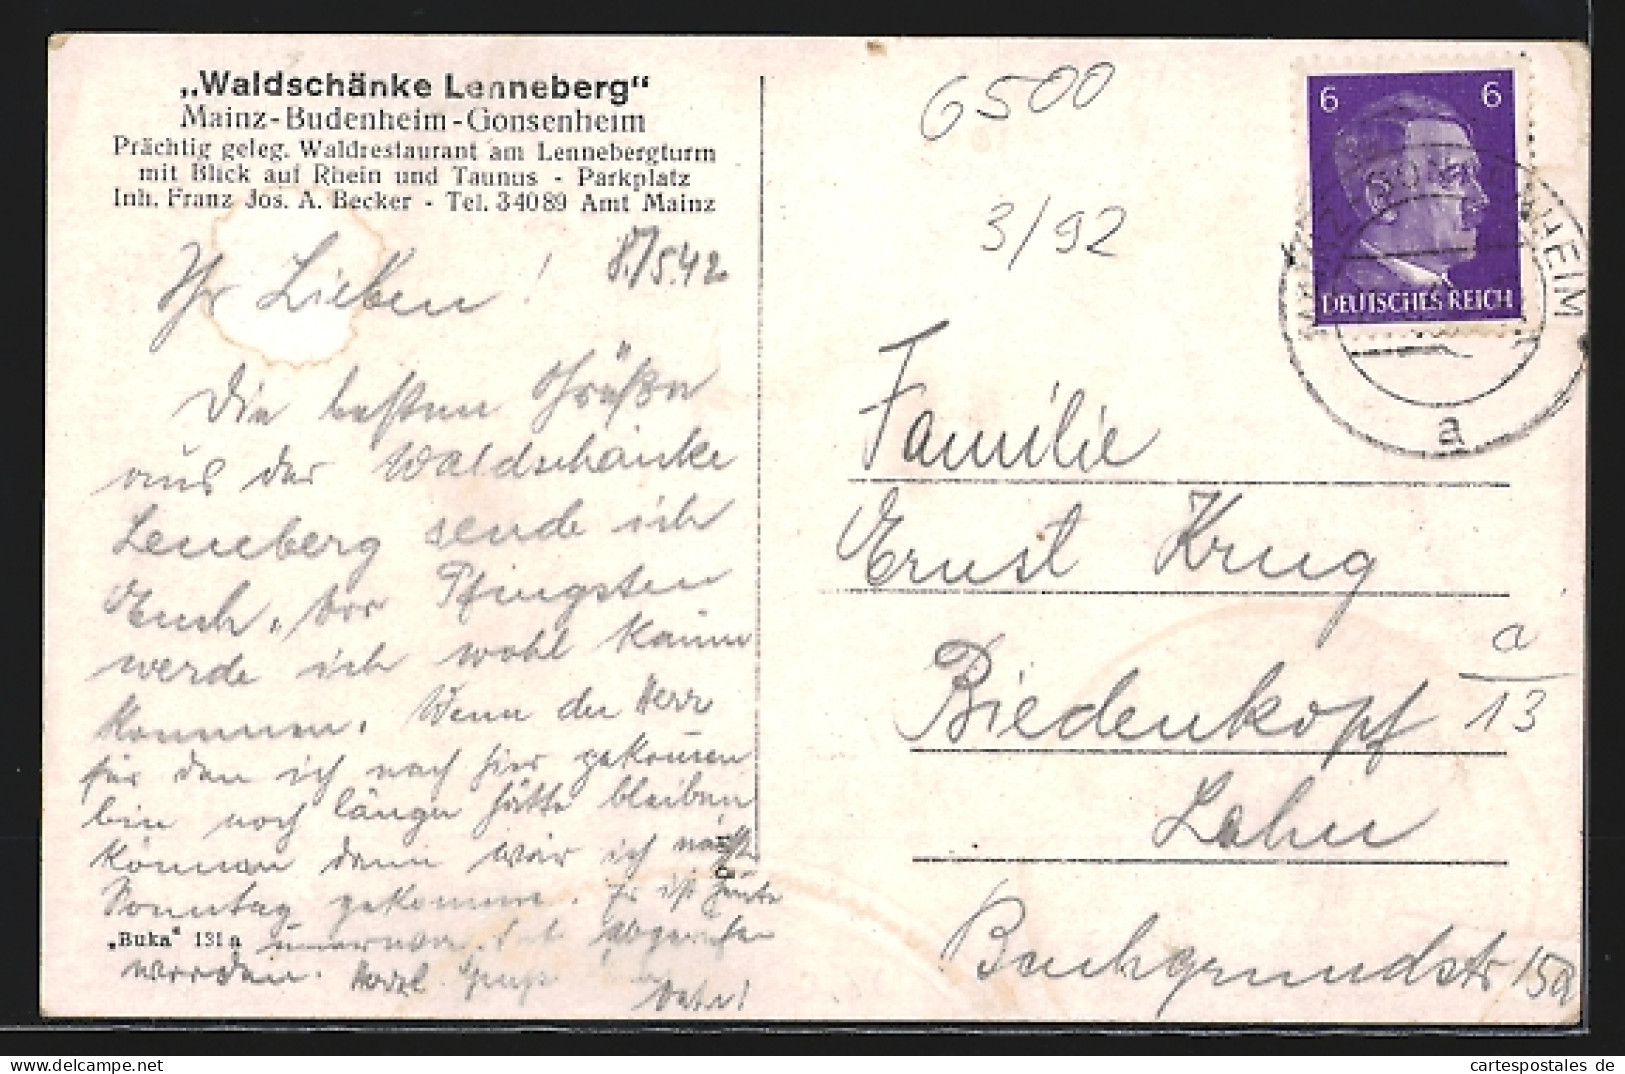 „Waldschänke Lenneberg“
Mainz-Budenheim-Gonsenheim
Prächtig geleg. Waldrestaurant am Lennebergturm
mit Blick auf Rhein und Taunus - Parkplatz
Inh. Franz Jos. A. Becker - Tel. 34089 Amt Mainz
5.42
Ihr Lieben!
Die besten Grüße
aus der Waldschänke
Leneberg sende ich
Euch. Vor Pfingsten
werde ich wohl kaum
kommen. Wenn der Herr
für den ich nach hier gekommen
bin noch länger hätte bleiben
können dann wär ich
Sonntag gekommen. Er ist heute
abgerufen
worden. Herzl.
„Buka“ 131a
6500
3/92
6 6
DEUTSCHES REICH
MAINZ GONSENHEIM
a
Familie
Ernst Krug
Biedenkopf
Lahn
Bachgrundstr 15a
a
13
cartespostales de